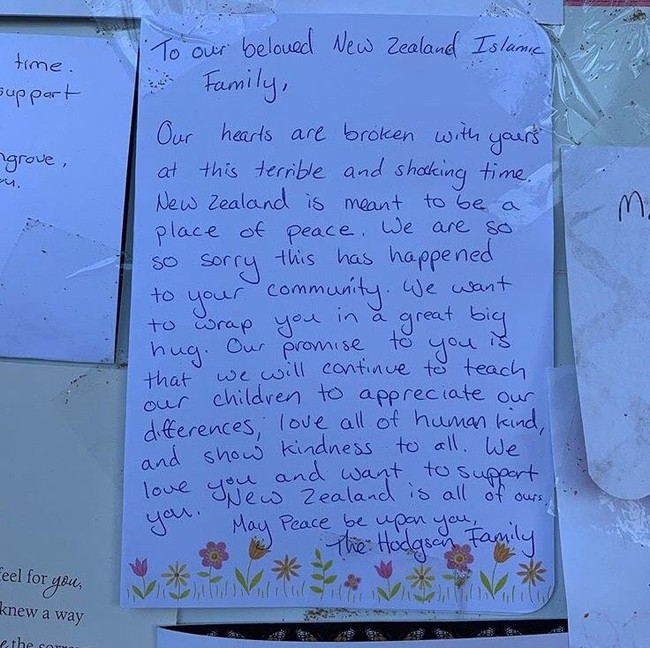 time.
support
ngrove,
To our beloved New Zealand Islamic
Family,
Our hearts are broken with yours
at this terrible and shocking time.
New Zealand is meant to be a
place of peace. We are so
so sorry this has happened
to your community. We want
to wrap you in a great big
hug. Our promise to you is
that we will continue to teach
our children to appreciate our
differences, love all of human kind,
and show kindness to all. We
love you and want to support
you. New Zealand is all of ours.
May Peace be upon you,
The Hodgson Family
feel for you,
knew a way
M